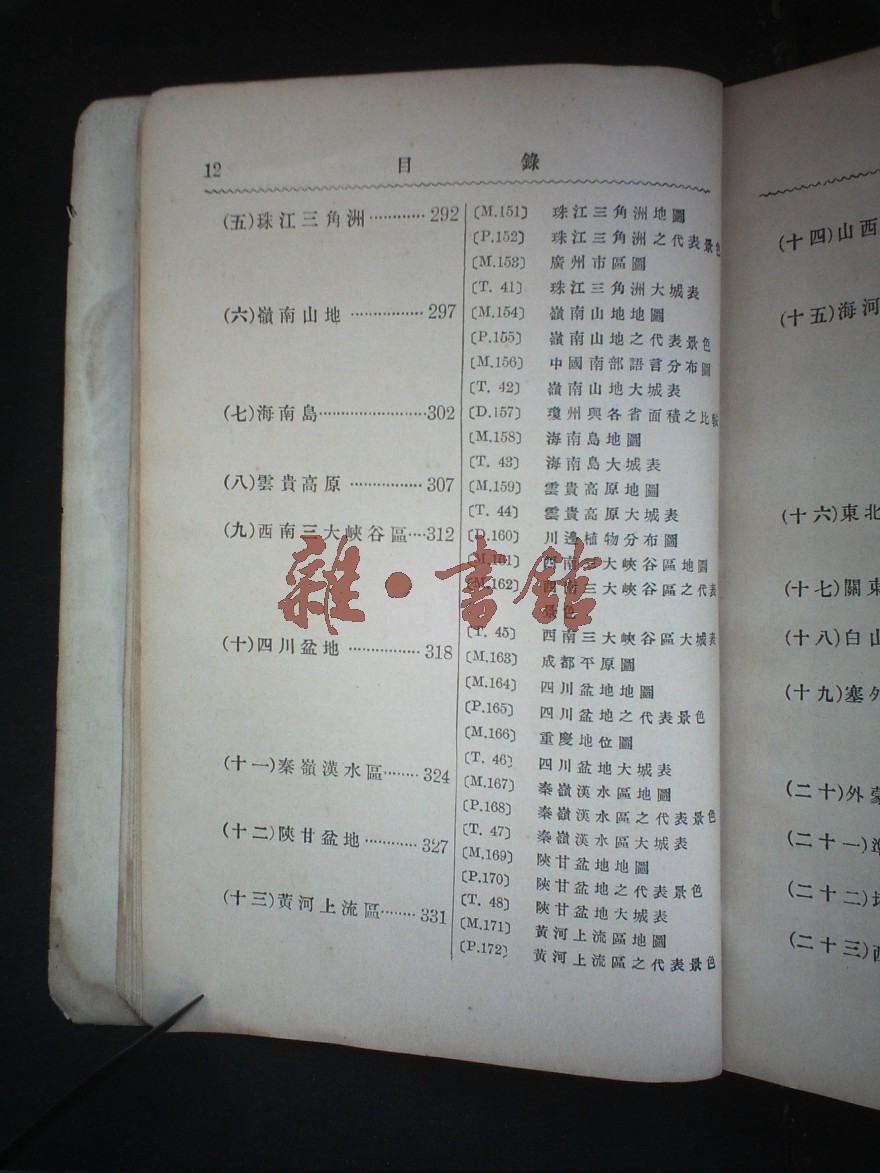 12 目 錄
(五)珠江三角洲…………292
(六)嶺南山地………………297
(七)海南島……………………302
(八)雲貴高原………………307
(九)西南三大峽谷區…312
(十)四川盆地………………318
(十一)秦嶺漢水區………324
(十二)陝甘盆地…………327
(十三)黃河上流區………331
〔M.151〕 珠江三角洲地圖
〔P.152〕 珠江三角洲之代表景色
〔M.153〕 廣州市區圖
〔T. 41〕 珠江三角洲大城表
〔M.154〕 嶺南山地地圖
〔P.155〕 嶺南山地之代表景色
〔M.156〕 中國南部語言分布圖
〔T. 42〕 嶺南山地大城表
〔D.157〕 瓊州與各省面積之比較
〔M.158〕 海南島地圖
〔T. 43〕 海南島大城表
〔M.159〕 雲貴高原地圖
〔T. 44〕 雲貴高原大城表
〔D.160〕 川邊植物分布圖
〔M.161〕 西南三大峽谷區地圖
〔M.162〕 西南三大峽谷區之代表
景色
〔T. 45〕 西南三大峽谷區大城表
〔M.163〕 成都平原圖
〔M.164〕 四川盆地地圖
〔P.165〕 四川盆地之代表景色
〔M.166〕 重慶地位圖
〔T. 46〕 四川盆地大城表
〔M.167〕 秦嶺漢水區地圖
〔P.168〕 秦嶺漢水區之代表景色
〔T. 47〕 秦嶺漢水區大城表
〔M.169〕 陝甘盆地地圖
〔P.170〕 陝甘盆地之代表景色
〔T. 48〕 陝甘盆地大城表
〔M.171〕 黃河上流區地圖
〔P.172〕 黃河上流區之代表景色
雜·書館
(十四)山西
(十五)海河
(十六)東北
(十七)關東
(十八)白山
(十九)塞外
(二十)外蒙
(二十一)
(二十二)
(二十三)西